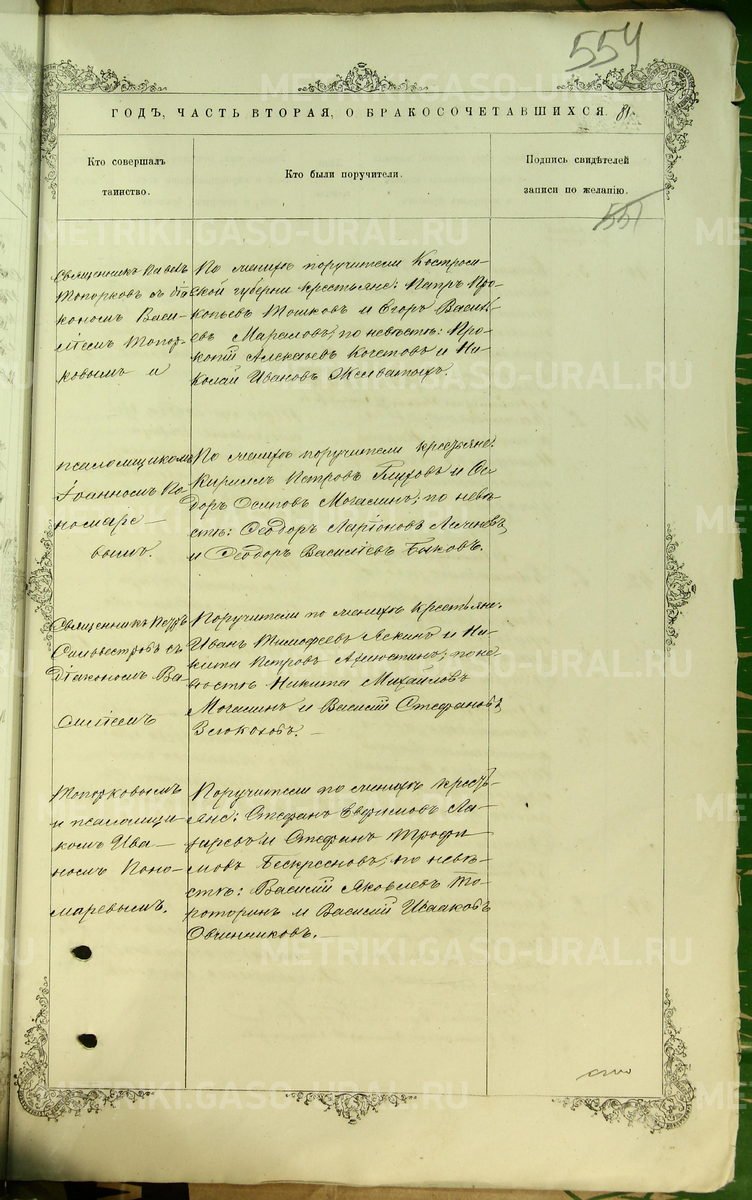 554
ГОДЪ, ЧАСТЬ ВТОРАЯ, О БРАКОСОЧЕТАВШИХСЯ. 81.
Кто совершалъ
таинство.
Кто были поручители.
Подпись свидѣтелей
записи по желанію.
551
Священникъ Павелъ
Топорковъ съ діа-
кономъ Васи-
ліемъ Топор-
ковымъ и
По женихѣ поручители Костром-
ской губерніи крестьяне: Петръ Про-
копьевъ Тошковъ и Егоръ Василь-
евъ по невѣстѣ: Про-
копій Алексѣевъ Кочетовъ и Ни-
колай Ивановъ
псаломщикомъ
Іоанномъ По-
номаре-
вымъ.
По женихѣ поручители крестьяне:
Кириллъ Петровъ Глуховъ и Ѳе-
доръ Осиповъ Могалинъ; по невѣ-
стѣ: Ѳеодоръ Ларіоновъ
и Ѳеодоръ Василіевъ Быковъ.
Священникъ Петръ
Селвестровъ съ
діакономъ Ва-
силіемъ
Поручители по женихѣ крестьяне:
Иванъ Тимофеевъ и Ни-
кита Петровъ по не-
вѣстѣ Никита Михайловъ
Могалинъ и Василій Стефановъ
Топорковымъ
и псаломщи-
комъ Ива-
номъ Поно-
маревымъ.
Поручители по женихѣ кресть-
яне: Стефанъ Евфимовъ Ла-
и Стефанъ Трофи-
мовъ по невѣ-
стѣ: Василій Яковлевъ То-
роторинъ и Василій Исааковъ
Овчинниковъ.
METRIKI.GASO-URAL.RU